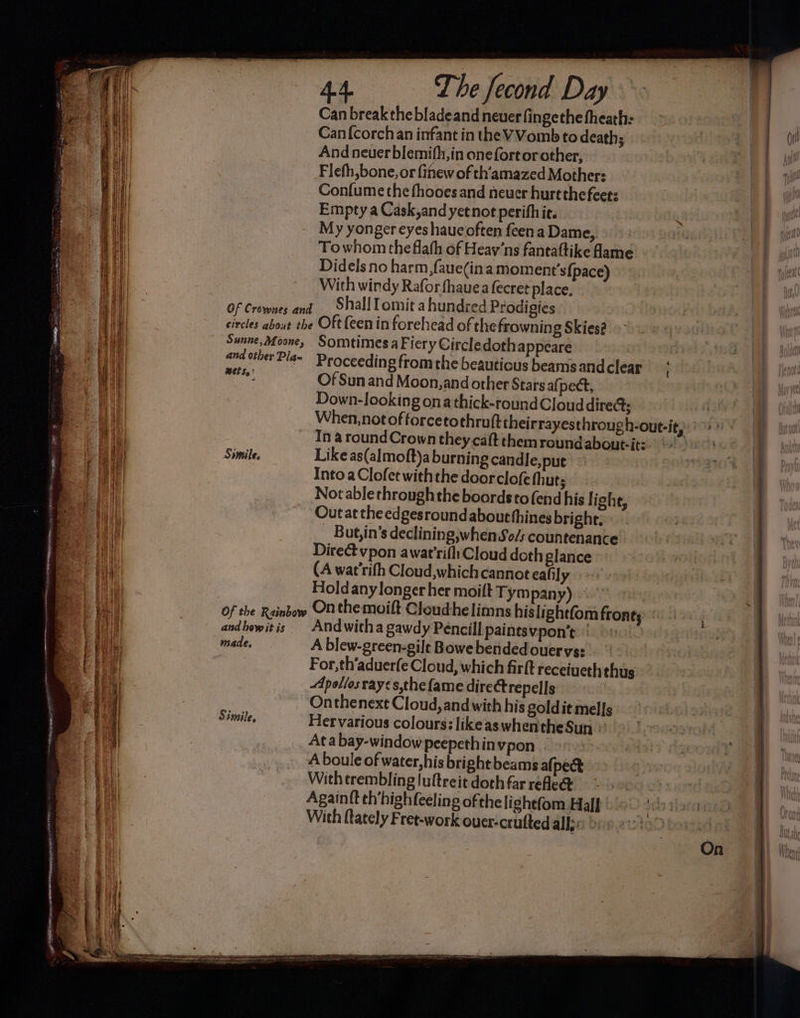 44 The ſecond Day
Can breake the blade and neuer ſinge the ſheath:
Can ſcorch an infant in the VVomb to death;
And neuer blemiſh, in one ſort or other,
Fleſh, bone, or ſinew of th'amazed Mother:
Conſume the ſhooes and neuer hurt the feet:
Empty a Cask, and yet not periſh it.
My yonger eyes haue often ſeen a Dame,
To whom the flaſh of Heav'ns fantaſtike flame
Did els no harm, ſaue (in a moment's ſpace)
With windy Raſor ſhaue a ſecret place.
Of Crownes and circles about the Sunne, Moone, and other Planets.
Shall I omit a hundred Prodigies
Oft ſeen in forehead of the frowning Skies?
Somtimes a Fiery Circle doth appeare
Proceeding from the beautious beams and clear
Of Sun and Moon, and other Stars aſpect,
Down-looking on a thick-round Cloud direct;
When, not of force to thruſt their rayes through-out-it,
In a round Crown they caſt them round about-it:
Simile.
Like as (almoſt) a burning candle, put
Into a Cloſet with the door cloſe ſhut;
Not able through the boords to ſend his light,
Out at the edges round about ſhines bright.
But, in's declining, when Sols countenance
Direct vpon a wat'riſh Cloud doth glance
(A wat'riſh Cloud, which cannot eaſily
Hold any longer her moiſt Tympany)
Of the Rainbow and how it is made.
On the moiſt Cloud he limns his lightſom front;
And with a gawdy Pencill paints vpon't
A blew-green-gilt Bowe bended ouer vs:
For, th'aduerſe Cloud, which firſt receiueth thus
Apollos rayes, the ſame direct repells
On the next Cloud, and with his gold it mells
Simile.
Her various colours: like as when the Sun
At a bay-window peepeth in vpon
A boule of water, his bright beams aſpect
With trembling luſtre it doth far reflect
Againſt th'high ſeeling of the lightſom Hall
With ſtately Fret-work ouer-cruſted all:
On